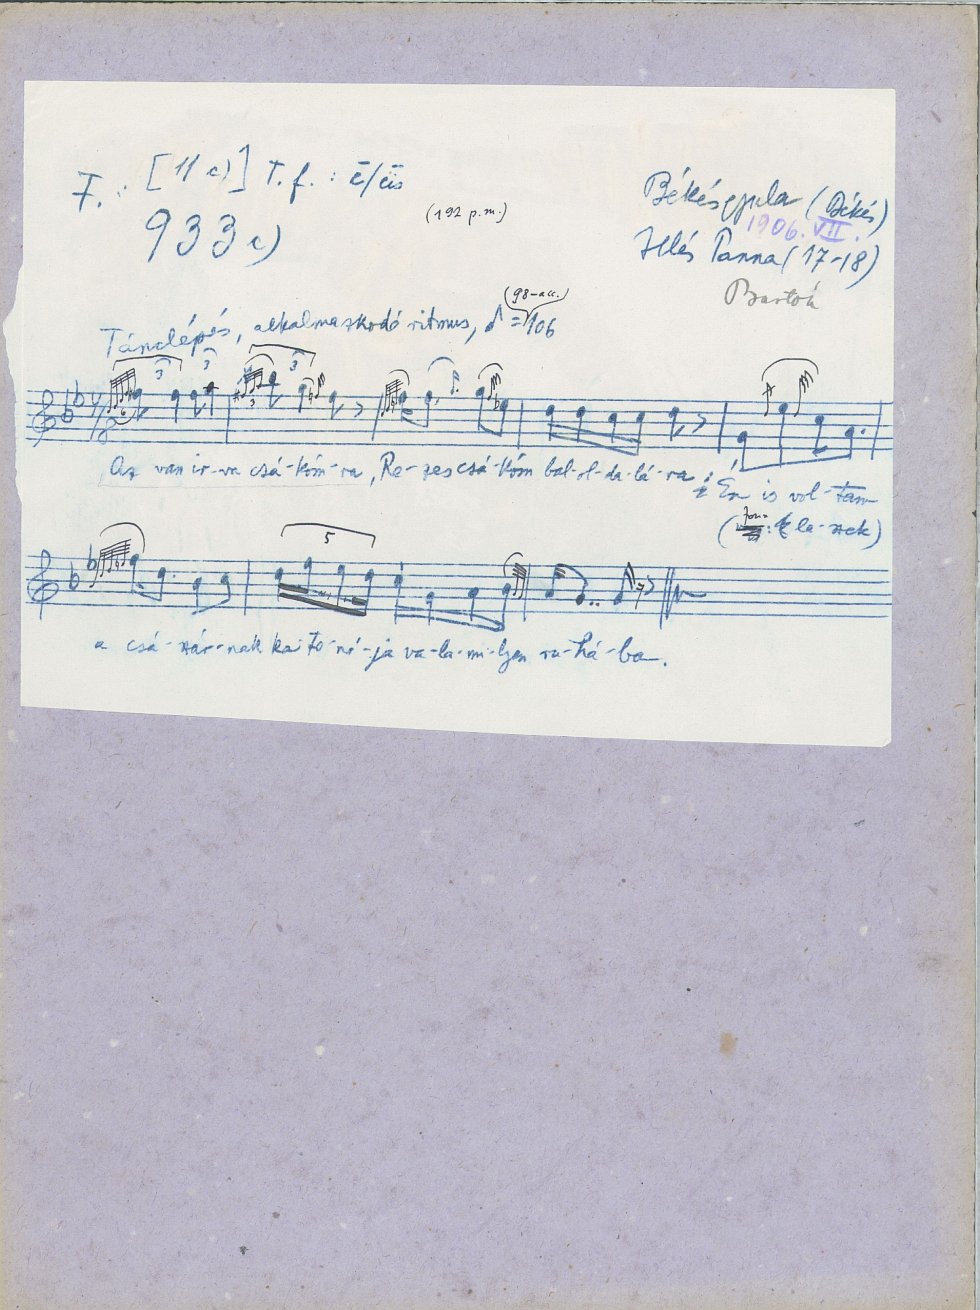 F. : [11 c)] T. f. : ē/ēis
933 c)
(192 p.m.)
Békésgyula (Békés)
1906. VII.
Illés Panna (17-18)
Bartók
Tánclépés, alkalmazkodó ritmus, ♪ = 106
(98-acc.)
3 3 3
6 3
Az van ir-va csá-kóm-ra, Re-zes csá-kóm bal-ol-da-lá-ra; Én is vol-tam
5
a csá-szár-nak ka-to-ná-ja va-la-mi-lyen ru-há-ba.